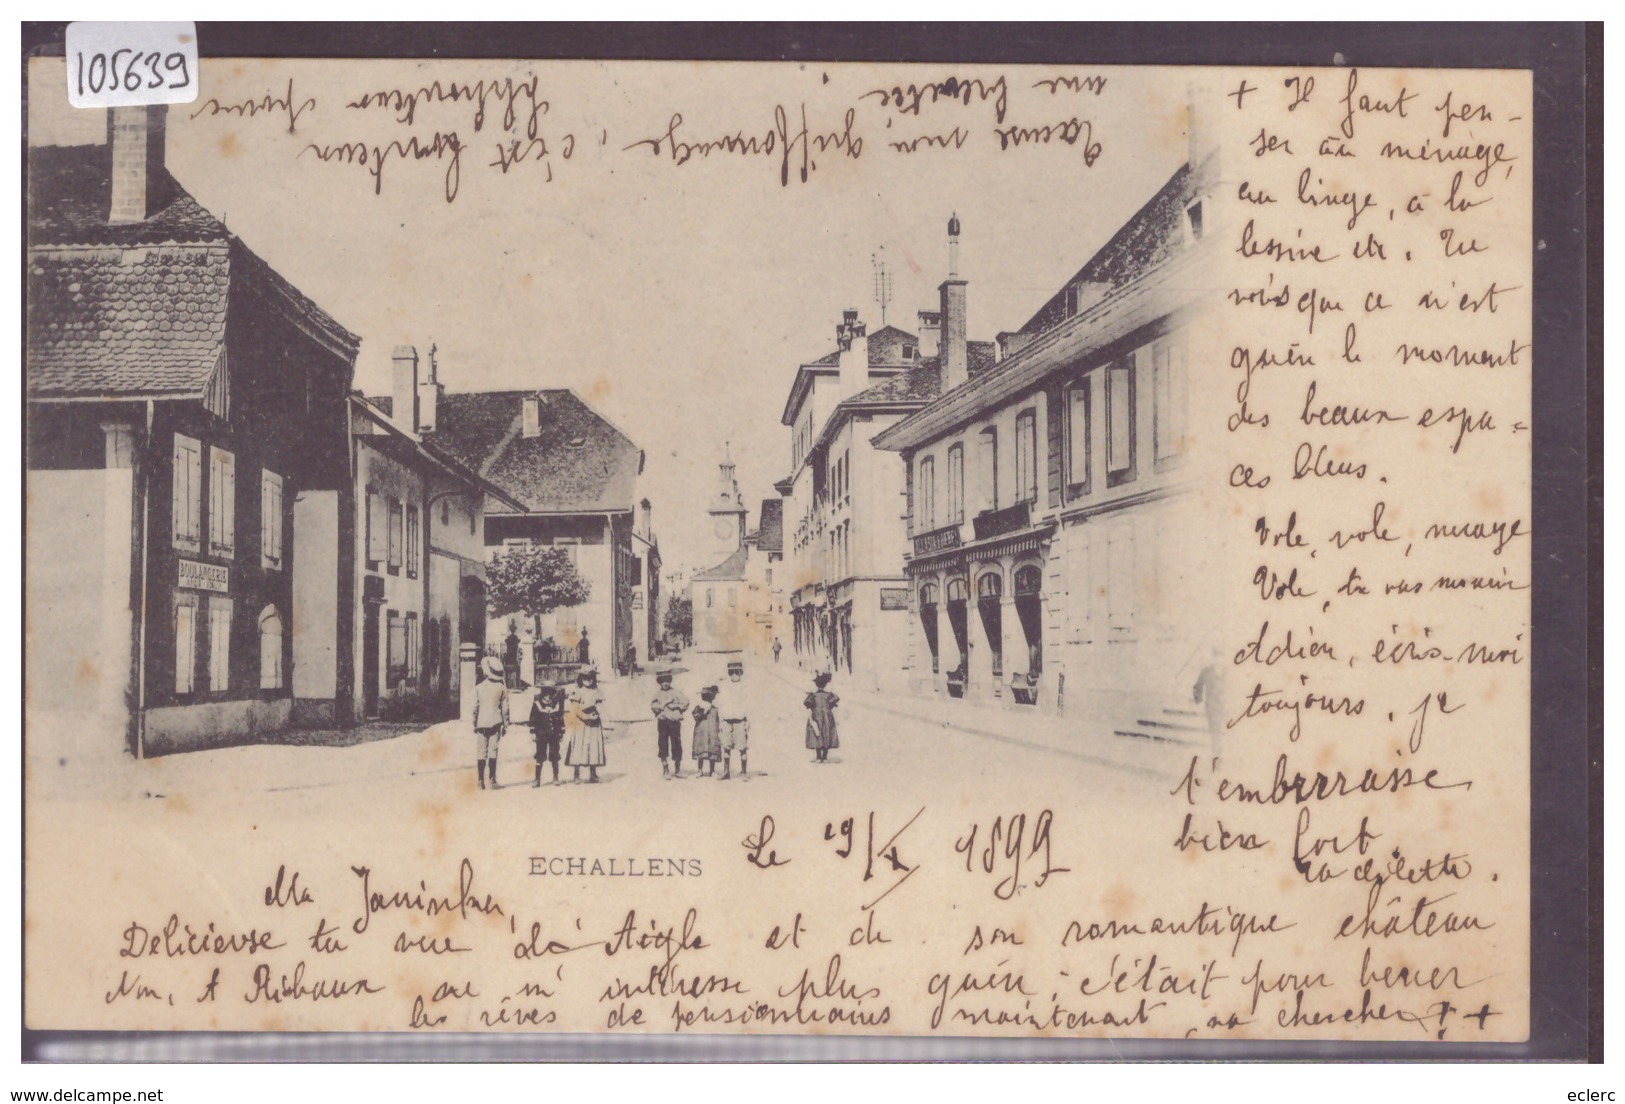 105639
ECHALLENS
Le 19/X 1899
Ma
Délicieuse ta vue d' Aigle et de son romantique château
Non, A ne m' intéresse plus guère ; c'était pour bercer
les rêves de pensionnaires maintenant, va chercher ! +
+ Il faut pen-
ser au ménage,
au linge, à la
lessive etc. Tu
vois que ce n'est
guère le moment
des beaux espa=
ces bleus.
Vole, vole, nuage
Vole, tu vas mourir
Adieu, écris-moi
toujours, je
t'embrrrasse
bien fort.
ta
Excuse mon griffonnage, c'est
une
BOULANGERIE
www.delcampe.net
eclerc